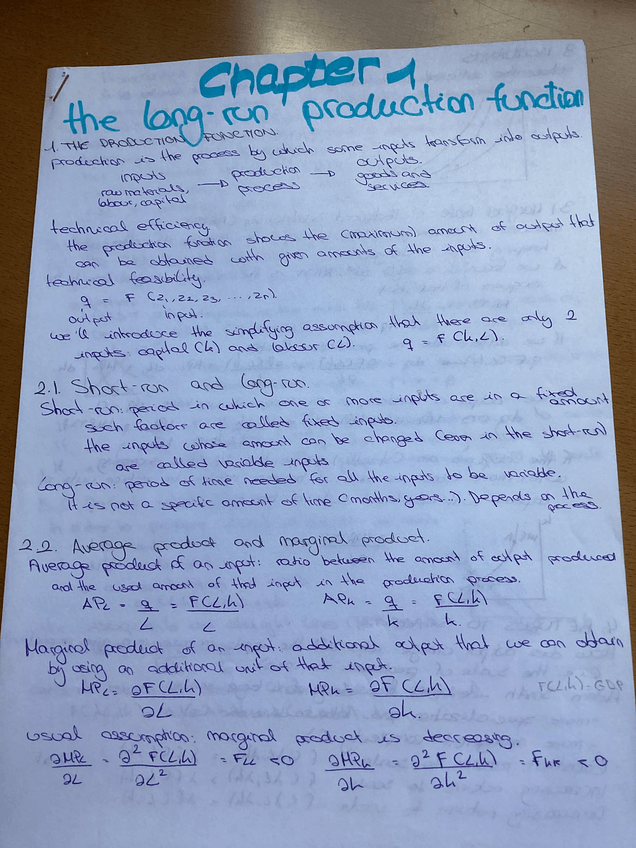 Chapter 1
the long-run production function
1. THE PRODUCTION FUNCTION.
production is the process by which some inputs transform into outputs
inputs → production → outputs.
raw materials, process goods and
labour, capital services.
technical efficiency
the production function shows the (maximum) amount of output that
can be obtained with given amounts of the inputs.
technical feasibility.
q = F (z1, z2, z3, ..., zn).
output input.
we'll introduce the simplifying assumption that there are only 2
inputs: capital (k) and labour (L). q = F (k,L).
2.1. Short-run and long-run.
Short-run: period in which one or more inputs are in a fixed amount
such factors are called fixed inputs.
the inputs whose amount can be changed (even in the short-run)
are called variable inputs
Long-run: period of time needed for all the inputs to be variable.
It is not a specific amount of time (months, years...). Depends on the
process.
2.2. Average product and marginal product.
Average product of an input: ratio between the amount of output produced
and the used amount of that input in the production process.
APL = q/L = F(L,k)/L APk = q/k = F(L,k)/k.
Marginal product of an input: additional output that we can obtain
by using an additional unit of that input.
MPL = ∂F(L,k)/∂L MPk = ∂F(L,k)/∂k. F(L,k) = GDP
usual assumption: marginal product is decreasing.
∂MPL/∂L = ∂²F(L,k)/∂L² = FLL < 0 ∂MPk/∂k = ∂²F(L,k)/∂k² = Fkk < 0